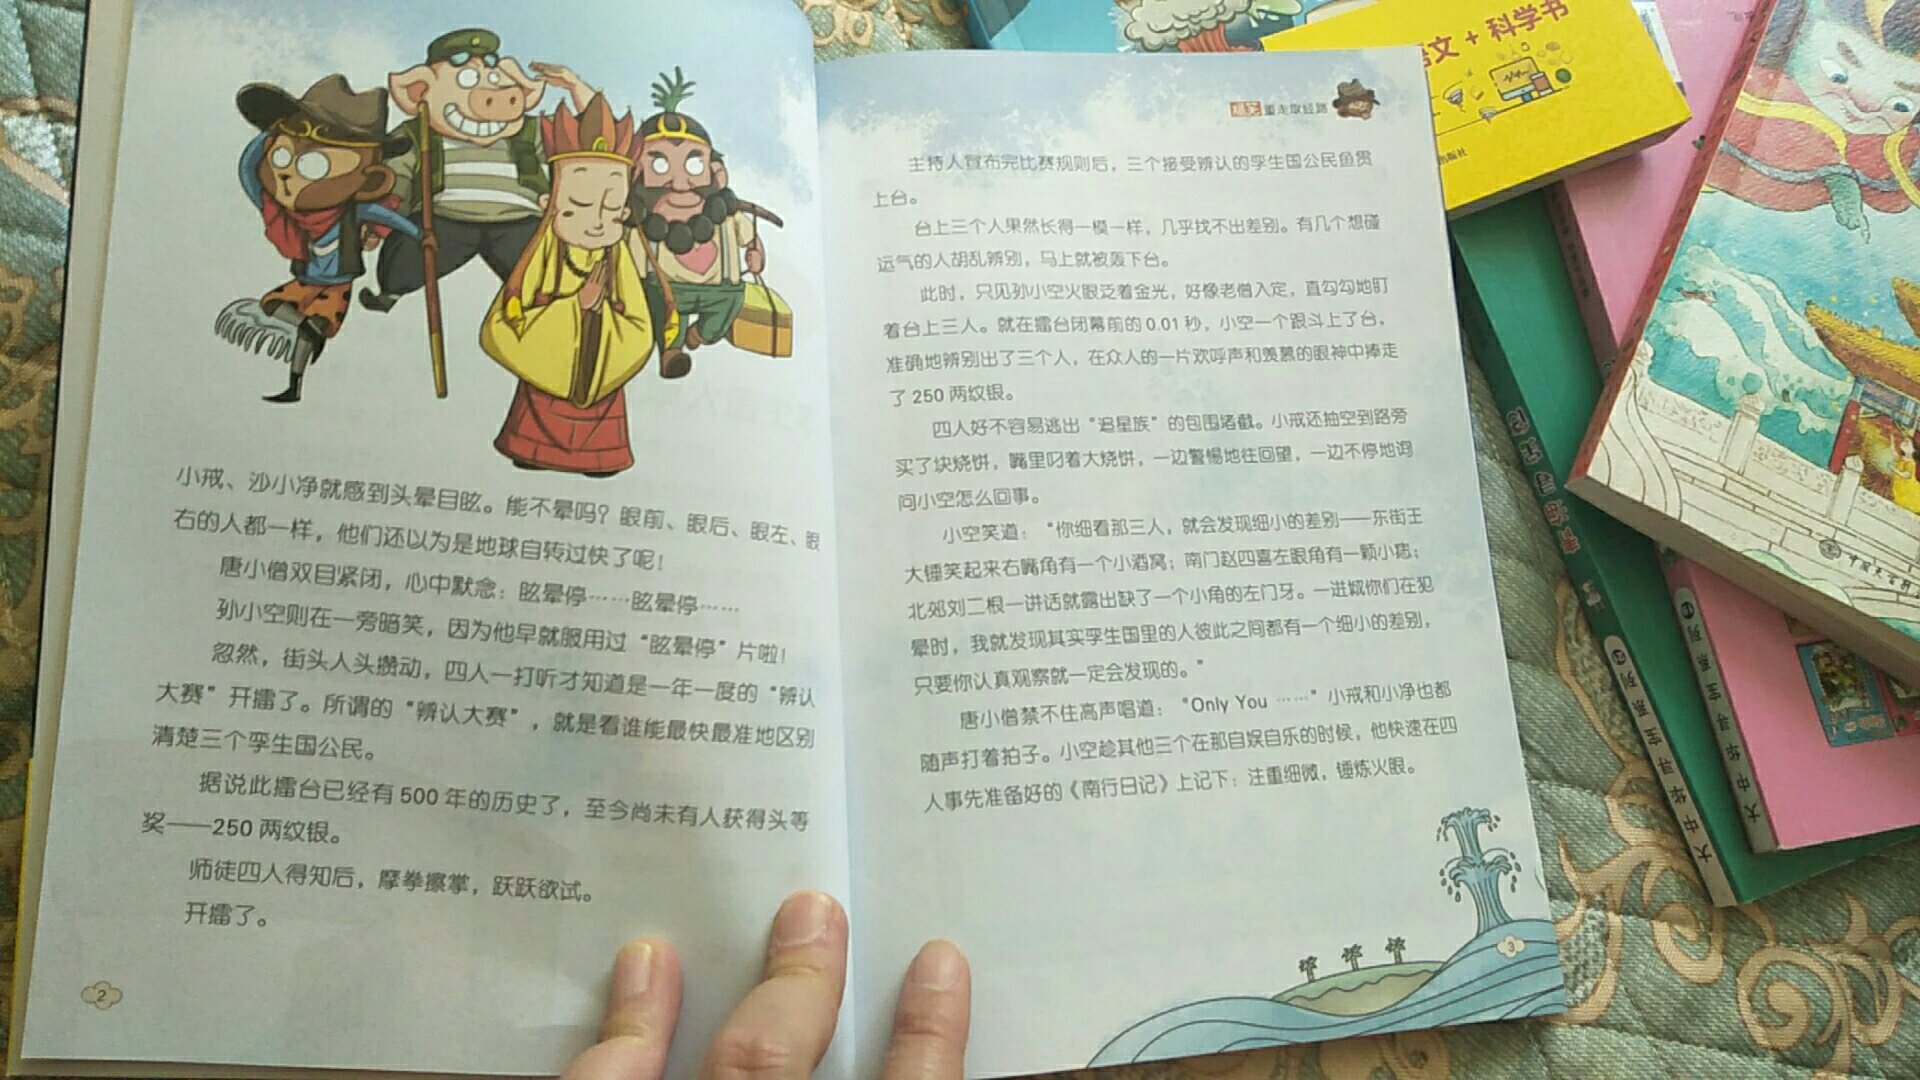 小戒、沙小净就感到头晕目眩。能不晕吗？眼前、眼后、眼左、眼
右的人都一样，他们还以为是地球自转过快了呢！
唐小僧双目紧闭，心中默念：眩晕停……眩晕停……
孙小空则在一旁暗笑，因为他早就服用过“眩晕停”片啦！
忽然，街头人头攒动，四人一打听才知道是一年一度的“辨认
大赛”开擂了。所谓的“辨认大赛”，就是看谁能最快最准地区别
清楚三个孪生国公民。
据说此擂台已经有500年的历史了，至今尚未有人获得头等
奖——250两纹银。
师徒四人得知后，摩拳擦掌，跃跃欲试。
开擂了。
2
爆笑 重走取经路
主持人宣布完比赛规则后，三个接受辨认的孪生国公民鱼贯
上台。
台上三个人果然长得一模一样，几乎找不出差别。有几个想碰
运气的人胡乱辨别，马上就被轰下台。
此时，只见孙小空火眼泛着金光，好像老僧入定，直勾勾地盯
着台上三人。就在擂台闭幕前的0.01秒，小空一个跟斗上了台，
准确地辨别出了三个人，在众人的一片欢呼声和羡慕的眼神中捧走
了250两纹银。
四人好不容易逃出“追星族”的包围堵截。小戒还抽空到路旁
买了块烧饼，嘴里叼着大烧饼，一边警惕地往回望，一边不停地询
问小空怎么回事。
小空笑道：“你细看那三人，就会发现细小的差别——东街王
大锤笑起来右嘴角有一个小酒窝；南门赵四喜左眼角有一颗小痣；
北郊刘二根一讲话就露出缺了一个小角的左门牙。一进城你们在犯
晕时，我就发现其实孪生国里的人彼此之间都有一个细小的差别，
只要你认真观察就一定会发现的。”
唐小僧禁不住高声唱道：“Only You ……”小戒和小净也都
随声打着拍子。小空趁其他三个在那自娱自乐的时候，他快速在四
人事先准备好的《南行日记》上记下：注重细微，锤炼火眼。
3
语文+科学书
出版社
大中华寻宝系列
大中华寻宝系列